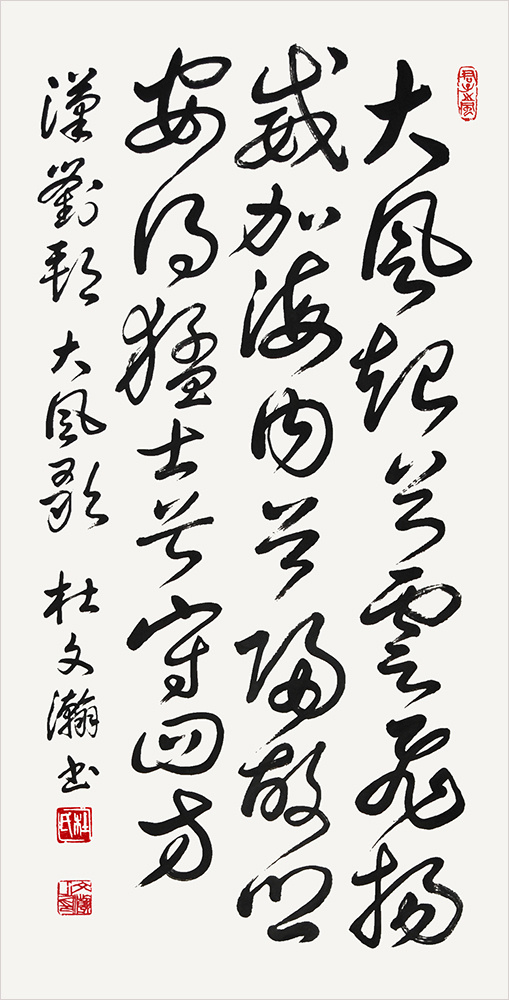 大風起兮雲飛揚
威加海内兮歸故鄉
安得猛士兮守四方
漢劉邦大風歌 杜文瀚書
杜氏